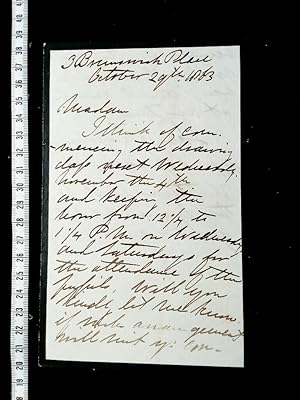 3 Brunswick Place
October 29th. 1863
Madam
I think of com-
mencing the drawing
class next Wednesday,
November the 4th
and keeping the
hour from 12 1/4 to
1 1/4 P.M. on Wednesdays
and Saturdays for
the attendance of the
pupils. Will you
kindly let me know
if such arrangement
will suit yr. con-